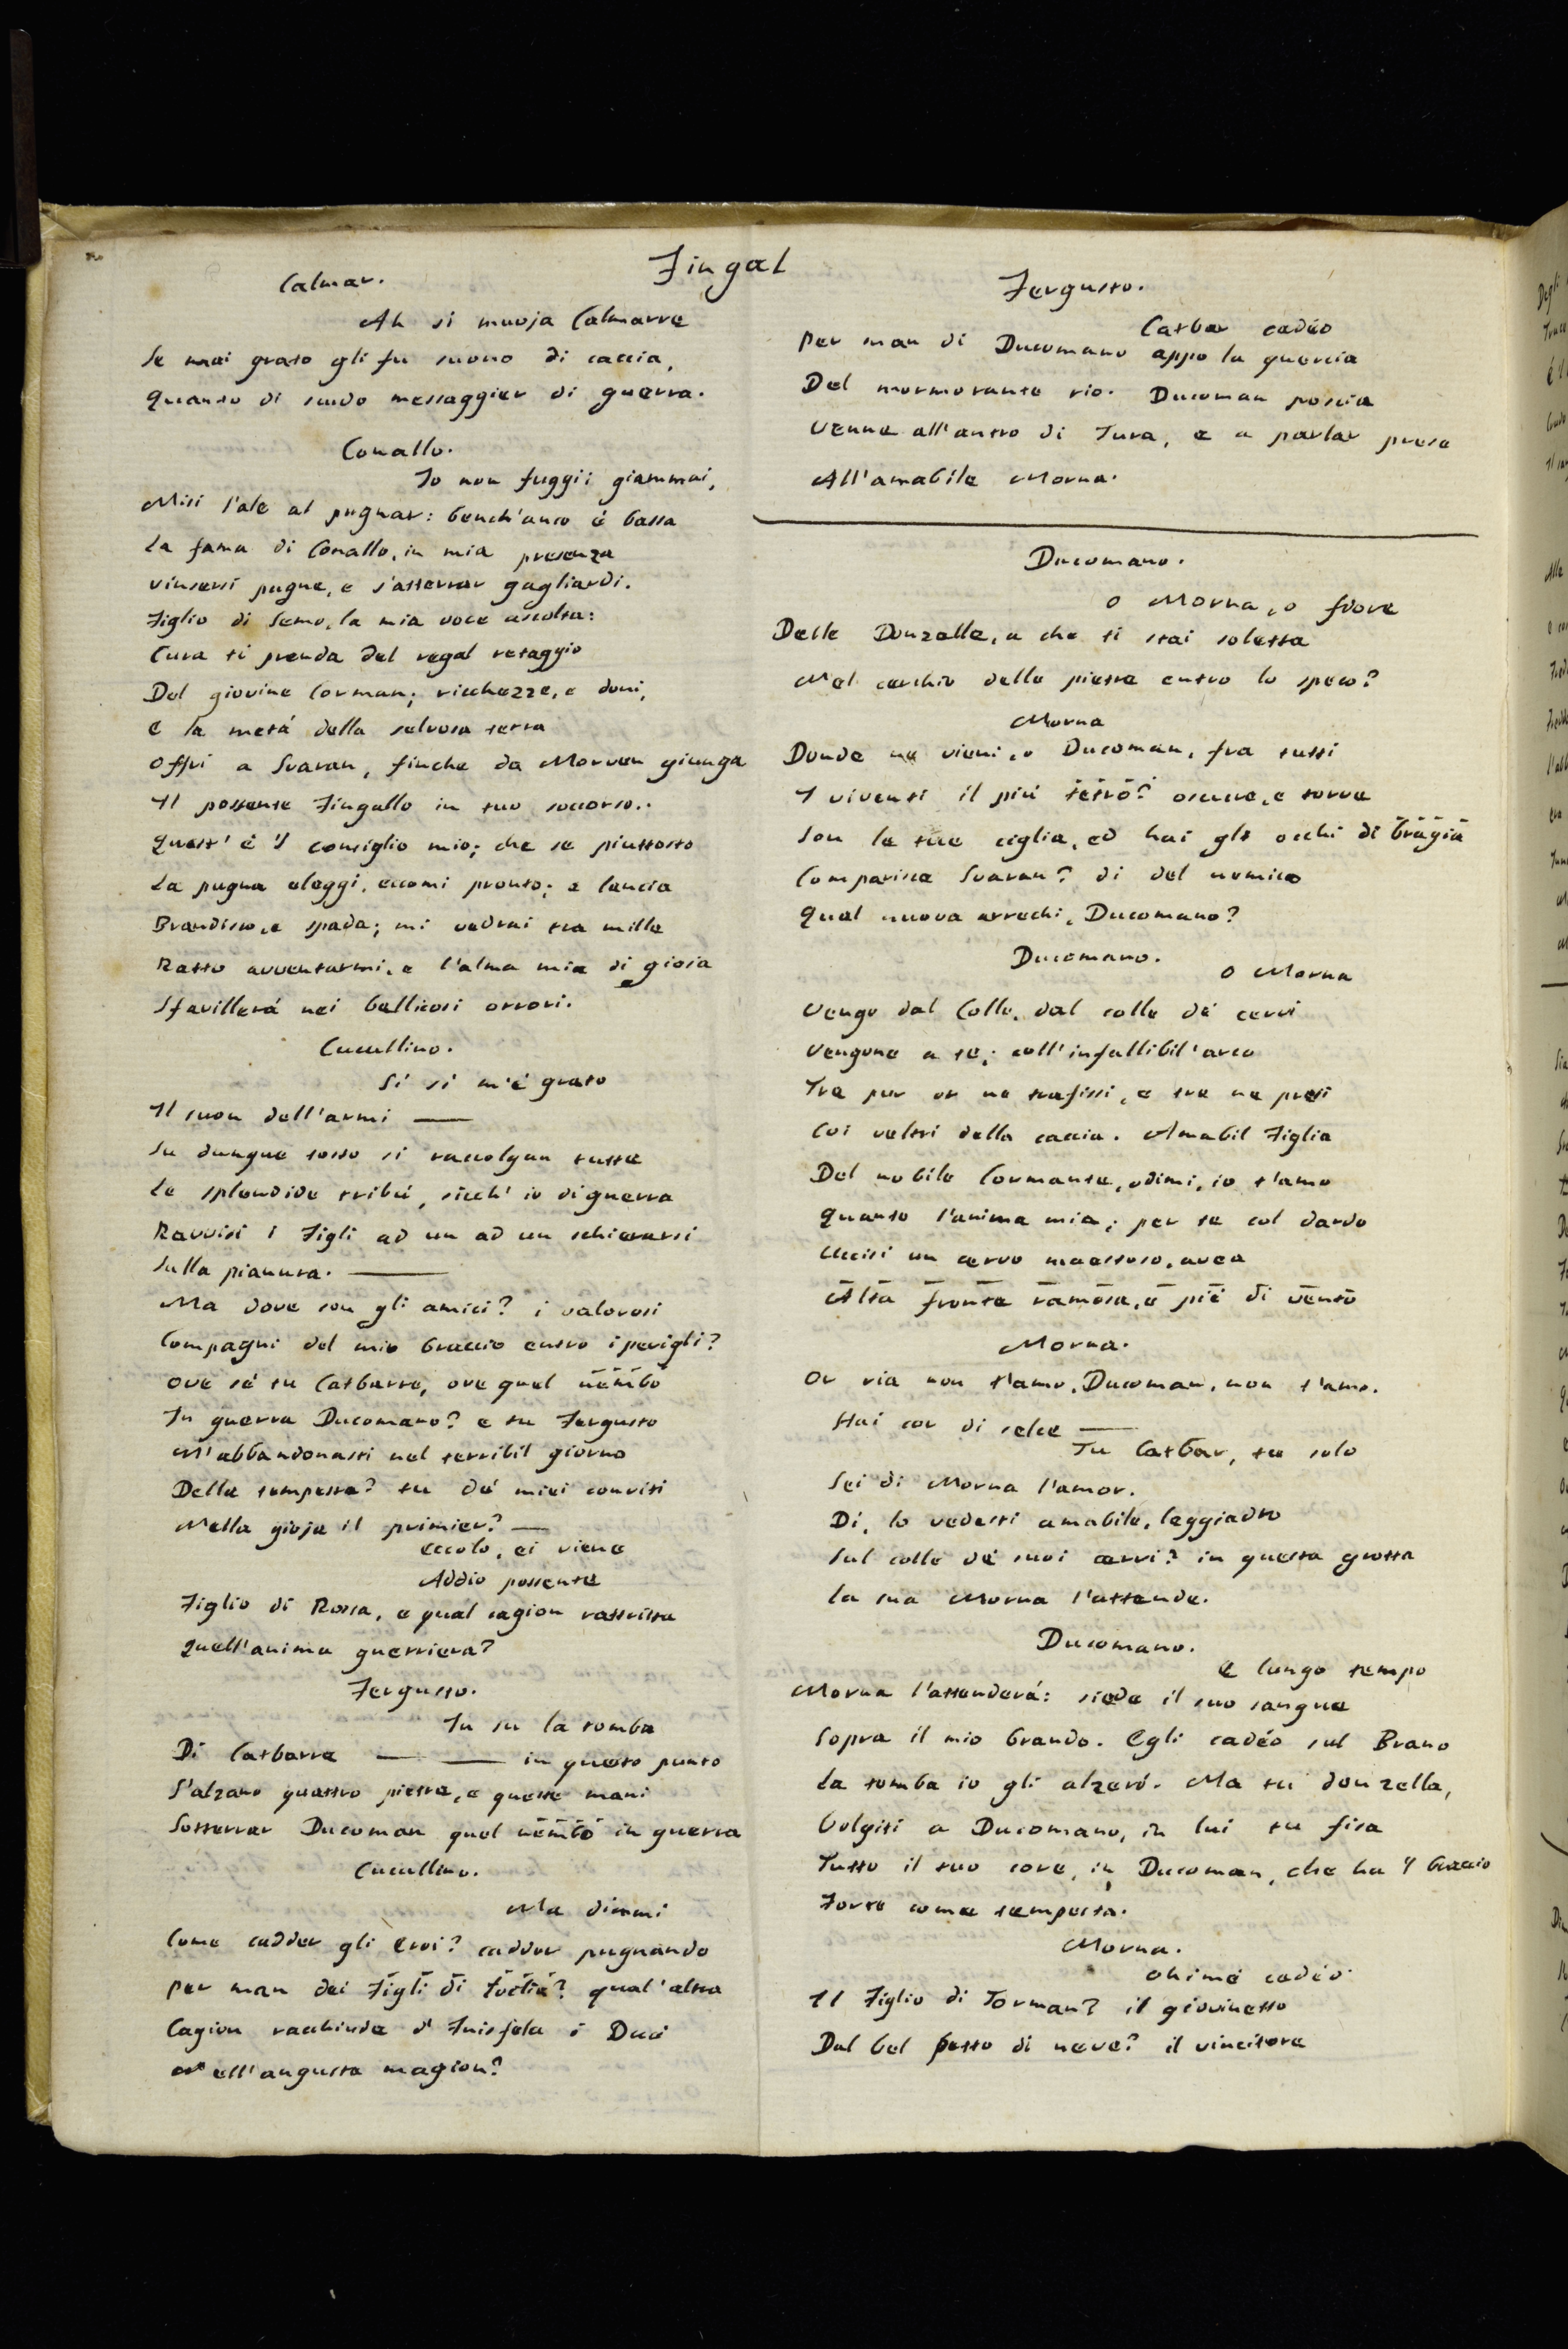 Fingal
Calmar.
Ah si muoja Calmarre
Se mai grato gli fu suono di caccia,
Quanto di scudo messaggier di guerra.
Conallo.
Io non fuggii giammai,
Misi l'ale al pugnar: bench'anco è bassa
La fama di Conallo, in mia presenza
vinsersi pugne, e s'atterrar gagliardi.
Figlio di Semo, la mia voce ascolta:
Cura ti prenda del regal retaggio
Del giovine Corman; ricchezze, e doni,
e la metá della selvosa terra
offri a Svaran, finche da Morven giunga
Il possente Fingallo in tuo soccorso..
Quest' é 'l consiglio mio; che se piuttosto
La pugna eleggi, eccomi pronto; e lancia
Brandisco, e spada; mi vedrai tra mille
Ratto avventarmi, e l'alma mia di gioia
Sfavillerá nei bellicosi orrori.
Cucullino.
Si si m'é grato
Il suon dell'armi —
Su dunque tosto si raccolgan tutte
Le splendide tribú, sicch' io di guerra
Ravvisi i Figli ad un ad un schierarsi
Sulla pianura. —
Ma dove son gli amici? i valorosi
Compagni del mio braccio entro i perigli?
ove sé tu Catbarre, ove quel nembo
In guerra Ducomano? e tu Fergusto
M'abbandonasti nel terribil giorno
Della tempesta? tu de' miei conviti
Nella gioja il primier? —
eccolo, ei viene
Addio possente
Figlio di Rossa, e qual cagion rattrista
Quell'anima guerriera?
Fergusto.
In su la tomba
Di Catbarre — — in questo punto
S'alzano quattro pietre, e queste mani
Sotterrar Ducoman quel nembo in guerra
Cucullino.
Ma dimmi
Come cadder gli eroi? cadder pugnando
per man dei Figli di Loclia? qual'altra
Cagion racchiude d' Inisfela i Duci
Nell'angusta magion?
Fergusto.
Catbar cadéo
Per man di Ducomano appo la quercia
Del mormorante rio. Ducoman poscia
Venne all'antro di Tura, e a parlar prese
All'amabile Morna.
Ducomano.
o Morna, o fiore
Delle Donzelle, a che ti stai soletta
Nel cerchio delle pietre entro lo speco?
Morna
Donde ne vieni, o Ducoman, fra tutti
I viventi il piú tetro? oscure, e torve
Son le tue ciglia, ed hai gli occhi di bragia
Comparisce Svaran? di del nemico
Qual nuova arrechi, Ducomano?
Ducomano.
o Morna
Vengo dal Colle, dal colle de' cervi
Vengone a te; coll'infallibil'arco
Tre pur or ne trafissi, e tre ne presi
Coi veltri della caccia. Amabil Figlia
Del nobile Cormante, odimi, io t'amo
Quanto l'anima mia; per te col dardo
Uccisi un cervo maestoso, avea
Alta fronte ramosa, e pié di vento
Morna.
Or via non t'amo, Ducoman, non t'amo.
Hai cor di selce —
Tu Catbar, tu solo
Sei di Morna l'amor.
Di, lo vedesti amabile, leggiadro
Sul colle de' suoi cervi? in questa grotta
La sua Morna l'attende.
Ducomano.
e lungo tempo
Morna l'attenderá: siede il suo sangue
Sopra il mio brando. Egli cadéo sul Brano
La tomba io gli alzeró. Ma tu donzella,
Volgiti a Ducomano, in lui tu fisa
Tutto il tuo core, in Ducoman, che ha 'l braccio
Forte come tempesta.
Morna.
ohimé cadéo
Il Figlio di Torman? il giovinetto
Dal bel petto di neve? il vincitore